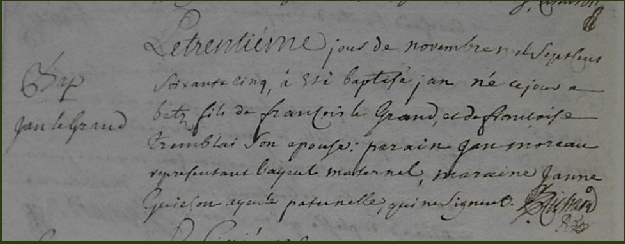 Le trentiéme jour de novembre mil Septcent
Bap
Soixante cinq, à été baptisé jan né ce jour a
jan le Grand
betz fils de françois le Grand, et de francoise
Tremblai Son epouse: parain jan moreau
representant l'ayeul maternel, maraine Janne
Guillon ayeule paternelle, qui ne Signent. Richard